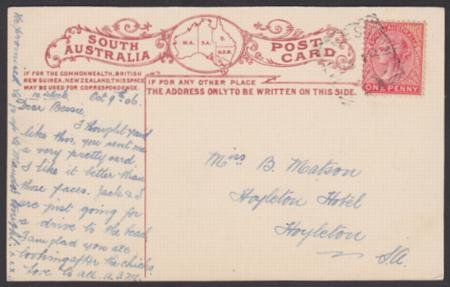 SOUTH AUSTRALIA
W.A. S.A. Q. N.S.W. V.
POST CARD
IF FOR THE COMMONWEALTH, BRITISH
NEW GUINEA, NEW ZEALAND, THIS SPACE
MAY BE USED FOR CORRESPONDENCE.
IF FOR ANY OTHER PLACE
THE ADDRESS ONLY TO BE WRITTEN ON THIS SIDE.
ONE PENNY
10 o'clock Oct 9th 06.
Dear Bessie,
I thought you'd
like this, you sent me
a very pretty card,
I like it better than
those faces. Jack & I
are just going for
a drive to the beach
I am glad you are
looking after the chicks
Love to all.
Miss B. Matson
Hoyleton Hotel
Hoyleton
S.A.